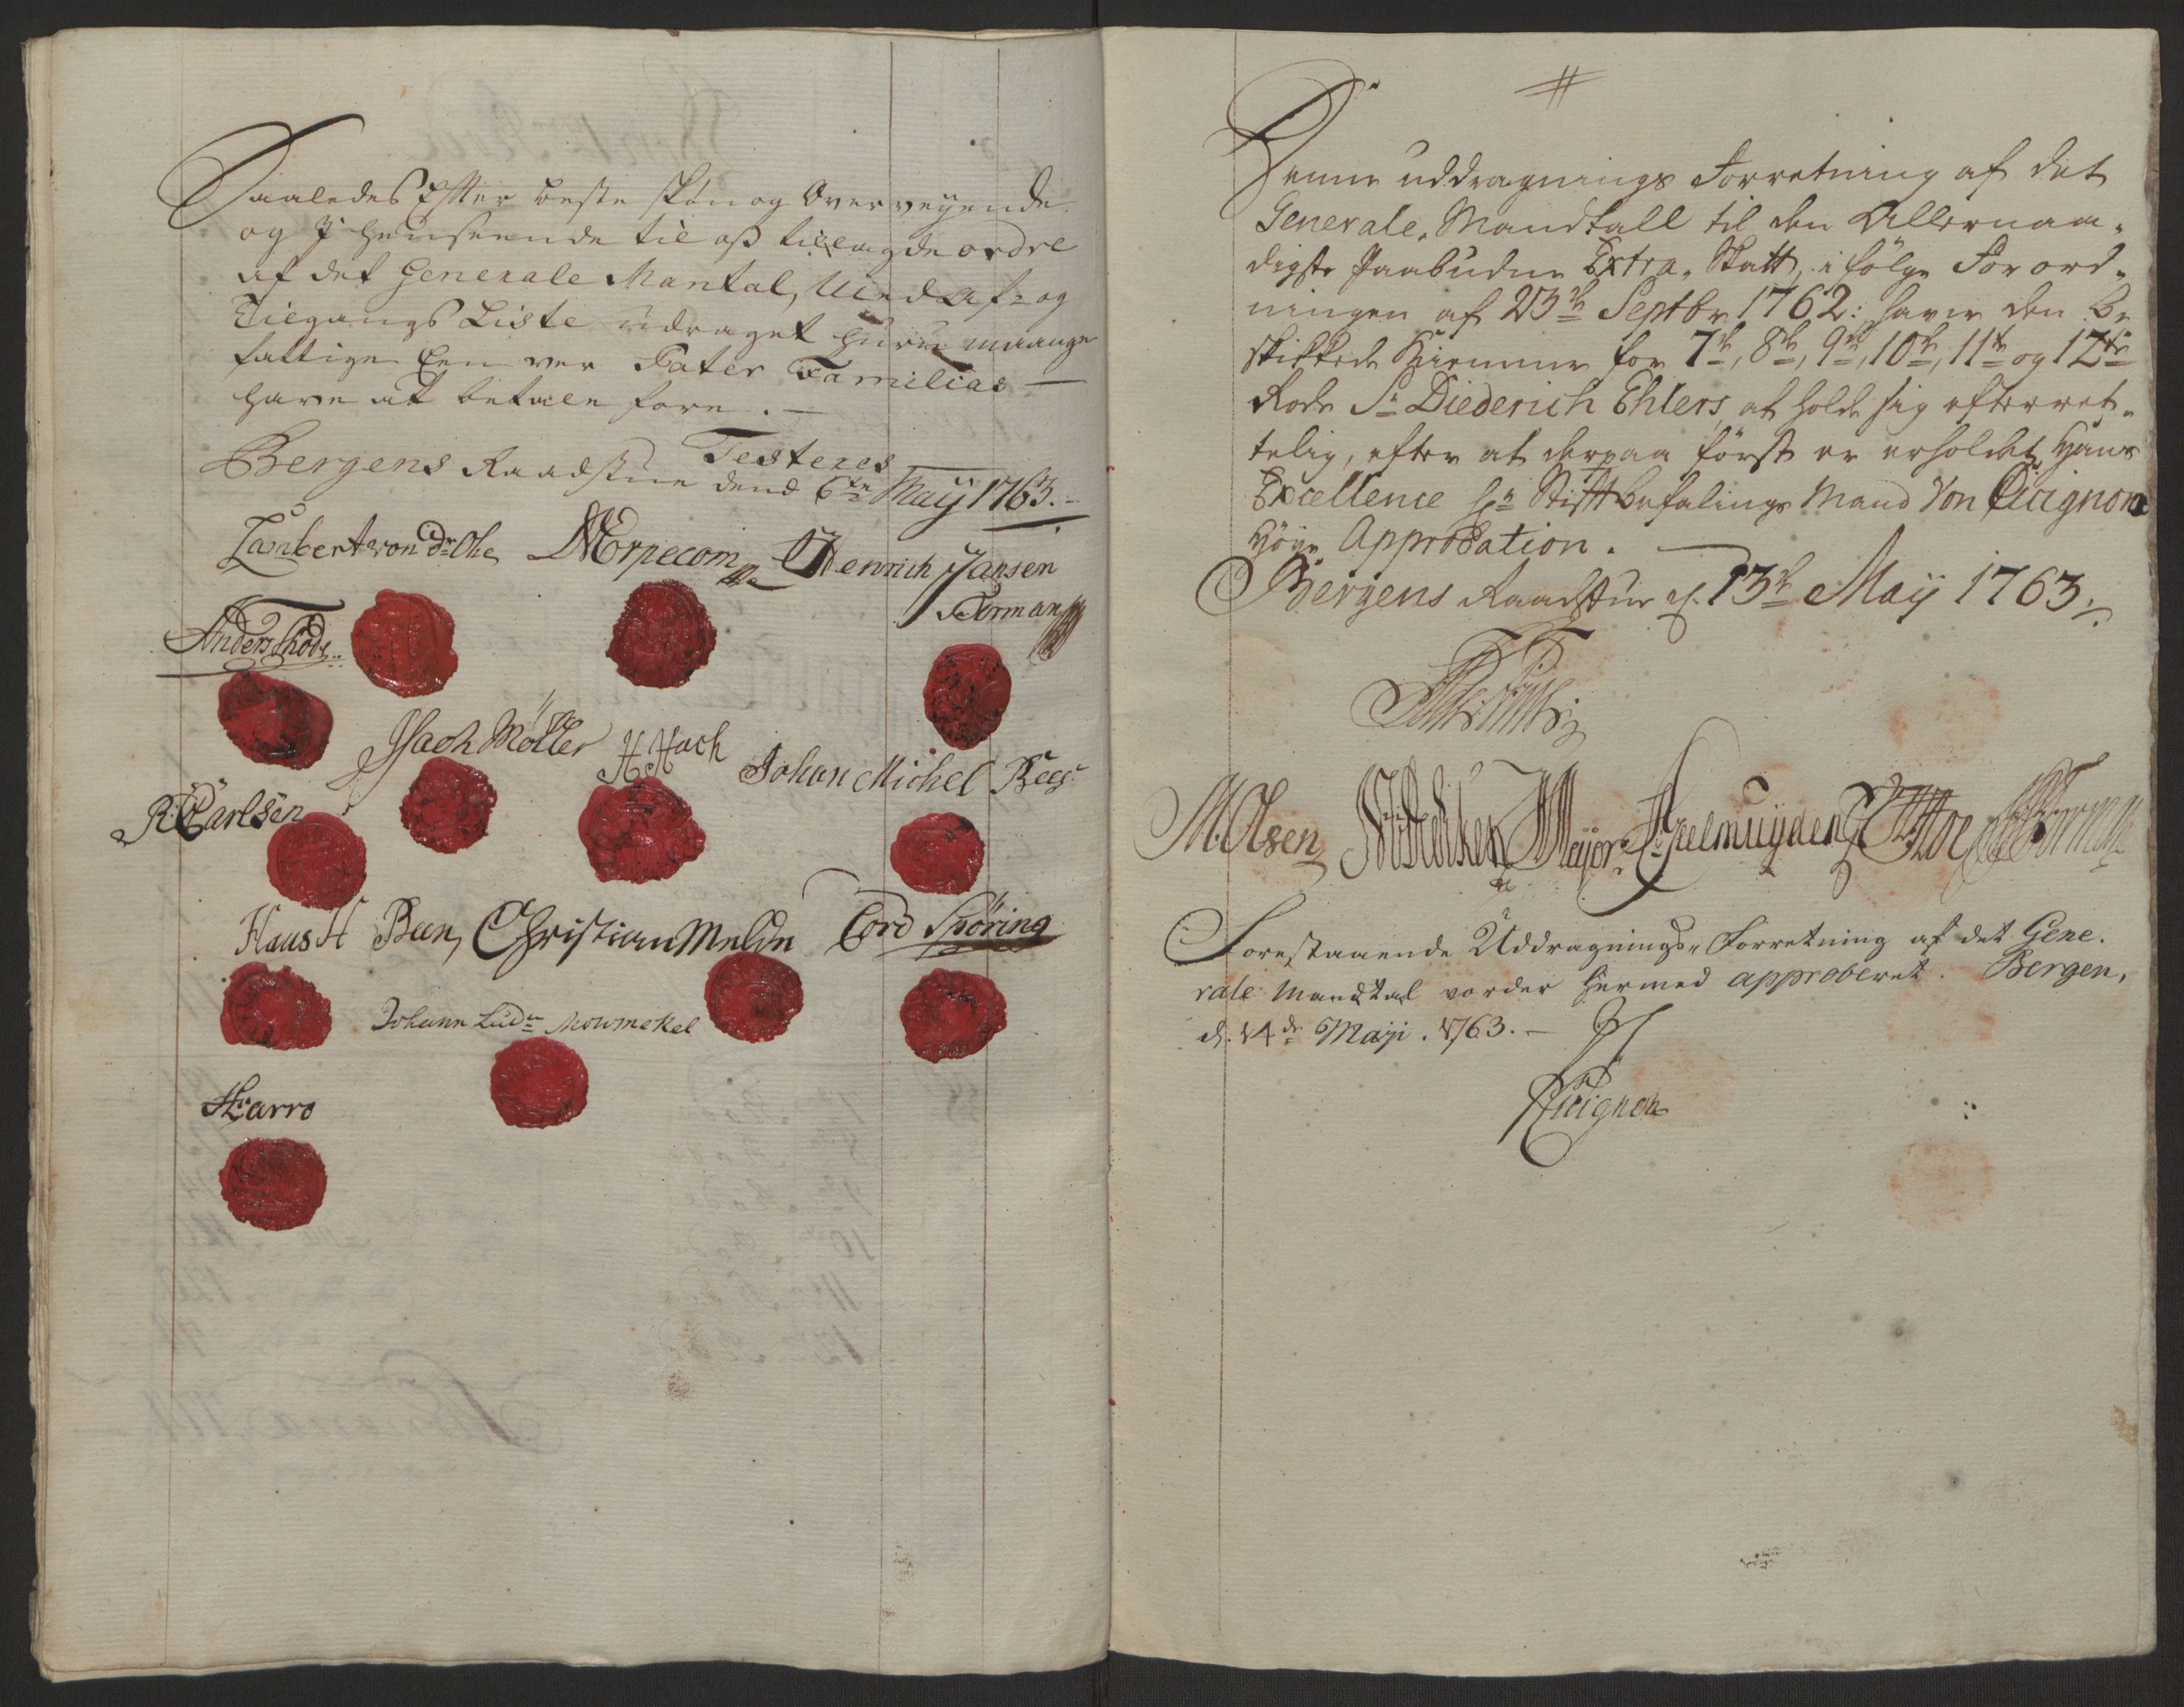 Saaledes Efter beste skiøn og Overveyende
og I henseende til os tillagde ordre
af det Generale Mantal, Med Af- og
Tilgangs Liste udraget huor mange
fattige Een ver Pater Familias
have at betale fore.
Testerer
Bergens Raadstue dend 6te Maij 1763.
Lambert von dr Ohe
Henrich Jansen
Forman
Anders
Isach Möller
H Hach
Johan Michel
R: Carlsen
Hans H Been
Christian
Cord Spöring
Johann Ludv Mowinckel
Harro
Denne uddragnings Forretning af det
Generale Mandtall til den Allernaa-
digste Paabudne Extra-Skatt, i følge Forord-
ningen af 23de Septbr 1762: haver den be
skikkede for 7de, 8de, 9de, 10de, 11te og 12te
Rode Sr Diederich Ehlers, at holde sig efterret-
telig, efter at derpaa först er erholdet Hans
Excellence Hr Stiftbefalings Mand Von Cicignon
Höye Approbation.
Bergens Raadstue d. 13de Maij 1763.
M. Olsen
Meyer
Geelmuyden
Forman
Forestaaende Uddragnings-Forretning af det Gene-
rale Mandtal vorder hermed approberet. Bergen,
d. 14de Maji. 1763.
Cicignon